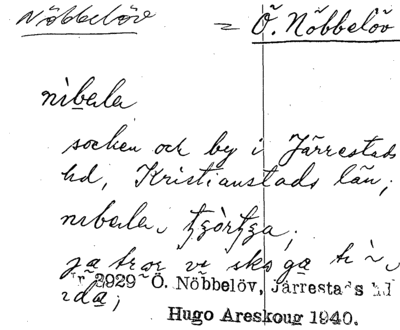 Nöbbelöv = Ö. Nöbbelöv
nìbala
socken och by i Järrestads
hd, Kristianstads län;
nibala
ja tror vi ska ga
Nr 2929 Ö. Nöbbelöv, Järrestads hd
ida;
Hugo Areskoug 1940.